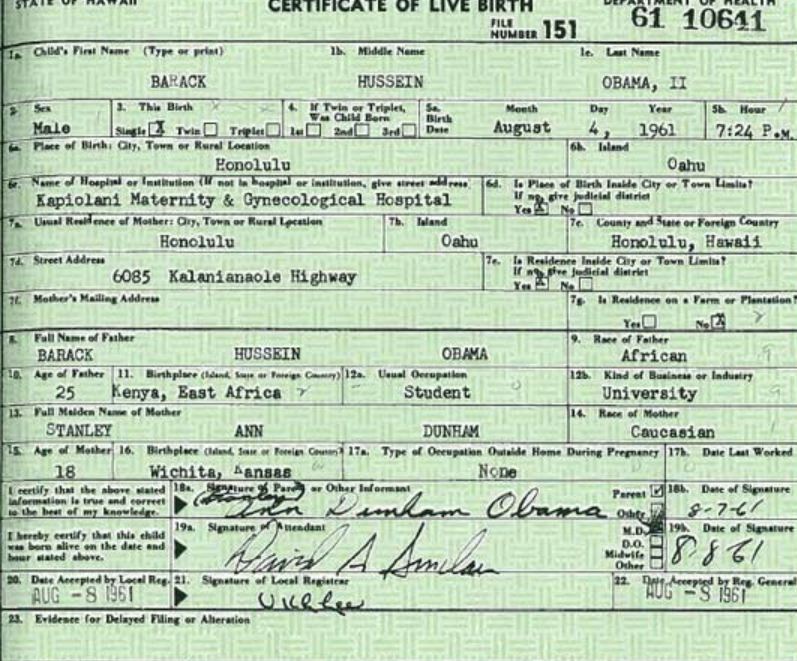 STATE OF HAWAII CERTIFICATE OF LIVE BIRTH DEPARTMENT OF HEALTH
FILE NUMBER 151 61 10641
1a. Child's First Name (Type or print) 1b. Middle Name 1c. Last Name
BARACK HUSSEIN OBAMA, II
2. Sex 3. This Birth 4. If Twin or Triplet, Was Child Born 5a. Birth Date Month Day Year 5b. Hour
Male Single X Twin Triplet 1st 2nd 3rd August 4, 1961 7:24 P.M.
6a. Place of Birth: City, Town or Rural Location 6b. Island
Honolulu Oahu
6c. Name of Hospital or Institution (If not in hospital or institution, give street address) 6d. Is Place of Birth Inside City or Town Limits? If no, give judicial district
Kapiolani Maternity & Gynecological Hospital Yes X No
7a. Usual Residence of Mother: City, Town or Rural Location 7b. Island 7c. County and State or Foreign Country
Honolulu Oahu Honolulu, Hawaii
7d. Street Address 7e. Is Residence Inside City or Town Limits? If no, give judicial district
6085 Kalanianaole Highway Yes X No
7f. Mother's Mailing Address 7g. Is Residence on a Farm or Plantation?
Yes No X
8. Full Name of Father 9. Race of Father
BARACK HUSSEIN OBAMA African 9
10. Age of Father 11. Birthplace (Island, State or Foreign Country) 12a. Usual Occupation 12b. Kind of Business or Industry
25 Kenya, East Africa Student 0 University 9
13. Full Maiden Name of Mother 14. Race of Mother
STANLEY ANN DUNHAM Caucasian 1
15. Age of Mother 16. Birthplace (Island, State or Foreign Country) 17a. Type of Occupation Outside Home During Pregnancy 17b. Date Last Worked
18 Wichita, Kansas None
I certify that the above stated information is true and correct to the best of my knowledge. 18a. Signature of Parent or Other Informant Parent Other 18b. Date of Signature
(Stanley) Ann Dunham Obama 8-7-61
I hereby certify that this child was born alive on the date and hour stated above. 19a. Signature of Attendant M.D. D.O. Midwife Other 19b. Date of Signature
David A Sinclair 8-8-61
20. Date Accepted by Local Reg. 21. Signature of Local Registrar 22. Date Accepted by Reg. General
AUG -8 1961 U K L Lee AUG -8 1961
23. Evidence for Delayed Filing or Alteration